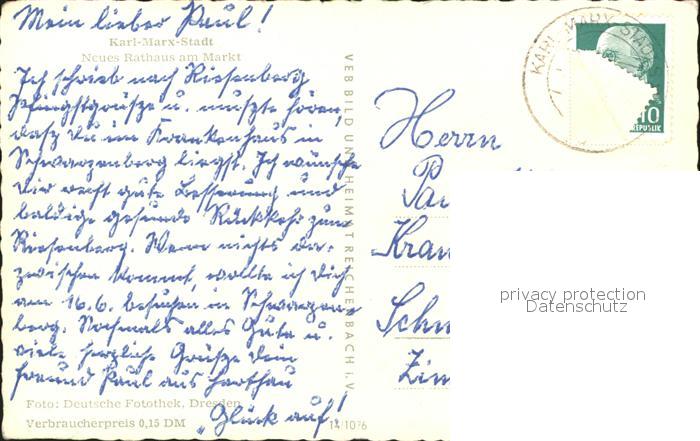 Mein lieber Paul!
Karl-Marx-Stadt
Neues Rathaus am Markt
Ich schrieb nach Riesenberg
Pfingstgrüsze u. muszte hören,
dasz Du im Krankenhaus in
Schwarzenberg liegst. Ich wünsche
Dir recht gute Besserung und
baldige gesunde Rückkehr zum
Riesenberg. Wenn nichts da-
zwischen kommt, wollte ich Dich
am 16.6. besuchen in Schwarzen-
berg. Nochmals alles Gute u.
viele herzliche Grüsze Dein
Freund Paul aus Harthau
"Glück auf!"
Foto: Deutsche Fotothek, Dresden
Verbraucherpreis 0,15 DM
14/1076
VEB BILD UND HEIMAT REICHENBACH i. V.
KARL-MARX-STADT
10
REPUBLIK
Herrn
Pa
Kran
Sch
Zim
privacy protection
Datenschutz